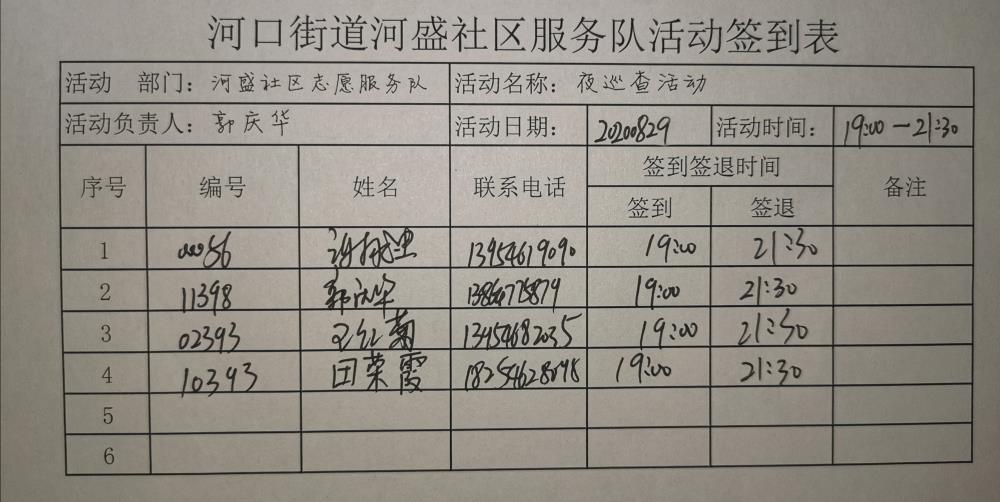 河口街道河盛社区服务队活动签到表
活动 部门：河盛社区志愿服务队 活动名称：夜巡查活动
活动负责人：郭庆华 活动日期：20200829 活动时间：19:00-21:30
序号 编号 姓名 联系电话 签到签退时间 备注
签到 签退
1 13954619090 19:00 21:30
2 11398 郭庆华 19:00 21:30
3 02393 王红菊 13954682035 19:00 21:30
4 10393 田荣霞 19:00 21:30
5
6